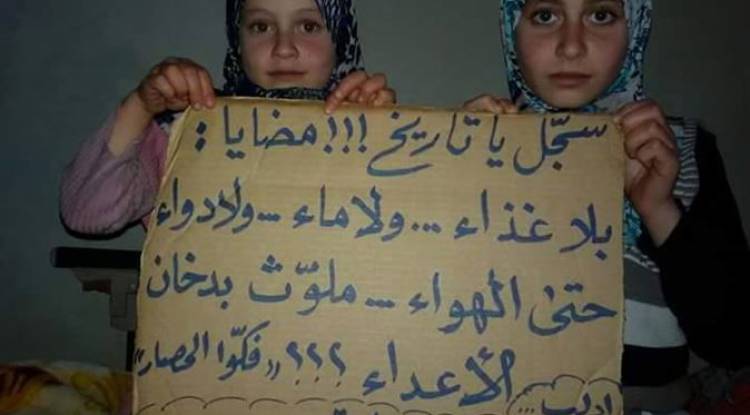 سجّل يا تاريخ !!! مضايا :
بلا غذاء ... ولا ماء ... ولا دواء
حتى الهواء ... ملوّث بدخان
الأعداء ؟؟؟ "فكّوا الحصار"
ادلب ...